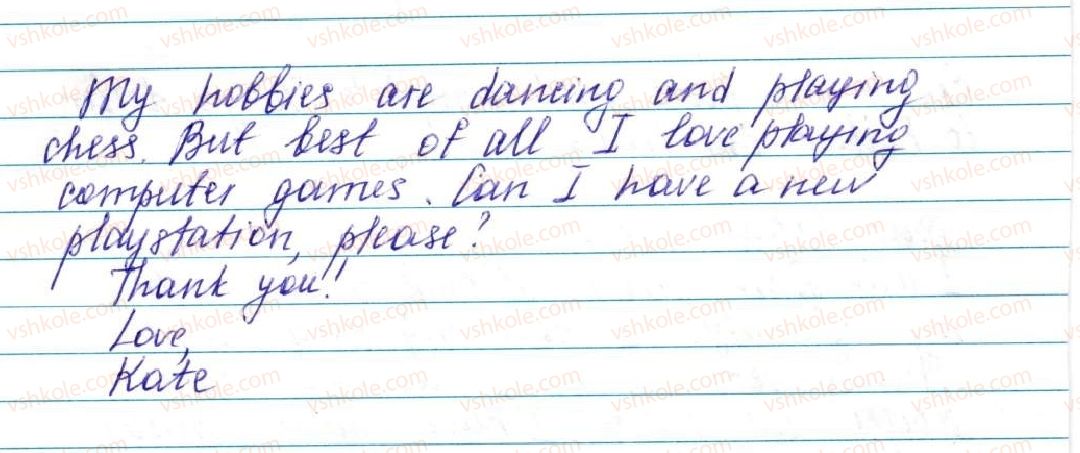 My hobbies are dancing and playing
chess. But best of all I love playing
computer games. Can I have a new
playstation, please?
Thank you!!
Love,
Kate